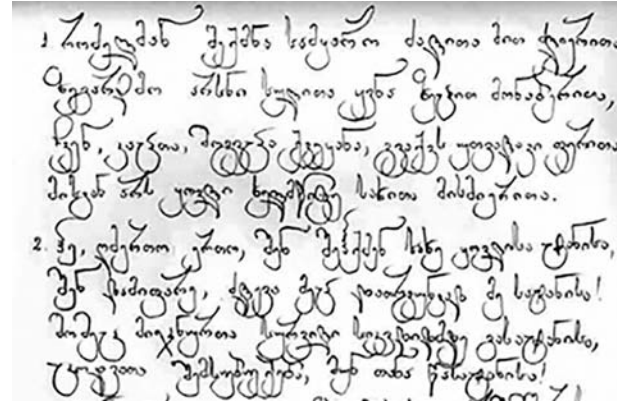 1. რომელმან შექმნა სამყარო ძალითა მით ძლიერითა,
ზეგარდმო არსნი სულითა ყვნა ზეცით მონაბერითა,
ჩვენ, კაცთა, მოგვცა ქვეყანა, გვაქვს უთვალავი ფერითა,
მისგან არს ყოვლი ხელმწიფე სახითა მისმიერითა.
2. ჰე, ღმერთო ერთო, შენ შეჰქმენ სახე ყოვლისა ტანისა,
შენ დამიფარე, ძლევა მეც დათრგუნვად მე სატანისა!
მომეც მიჯნურთა სურვილი სიკვდიმდე გასატანისა,
ცოდვათა შემსუბუქება, მუნ თანა წასატანისა!